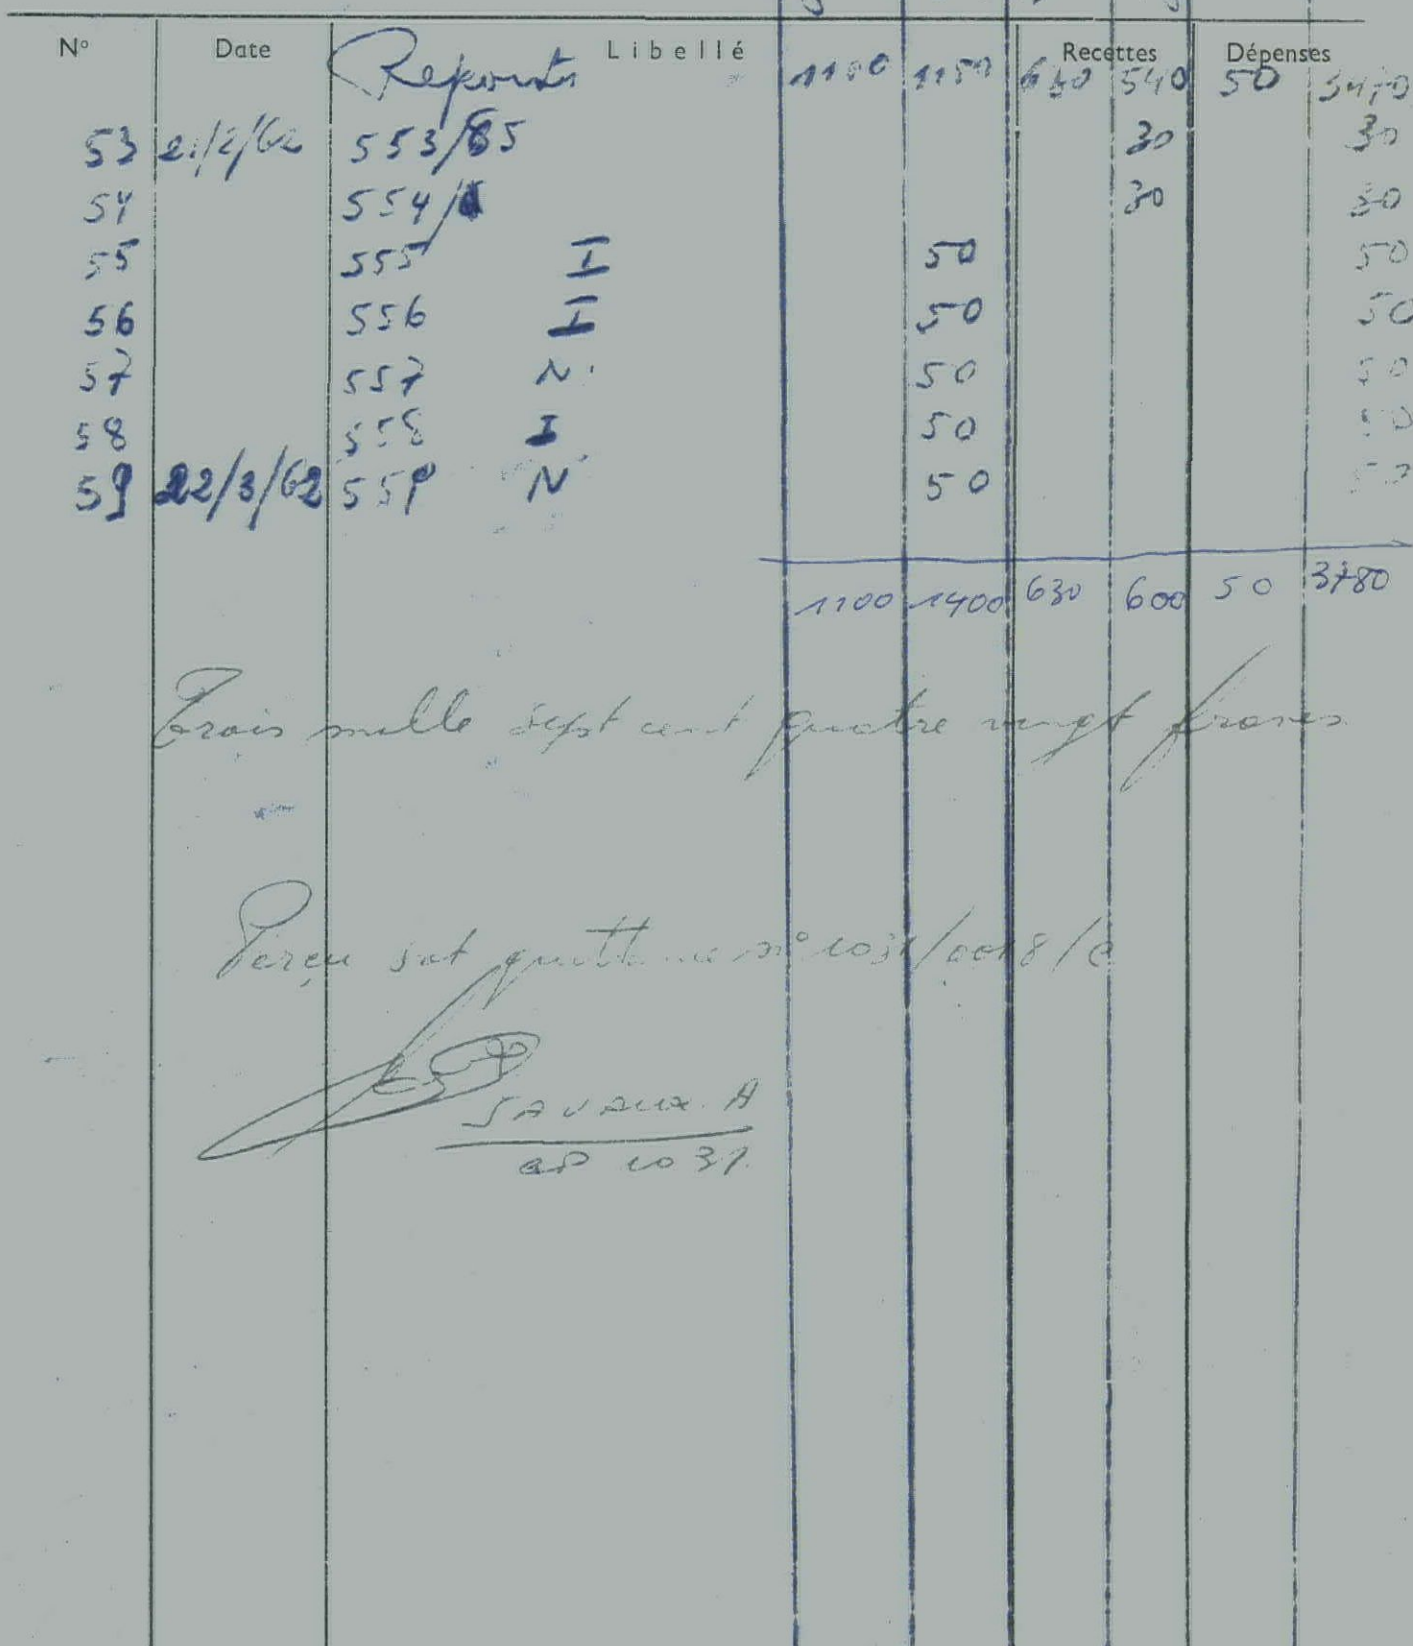 N° Date Libellé Recettes Dépenses
Reports 1100 1150 630 540 50 3470
53 21/2/62 553/65 30 30
54 554/ 30 30
55 555 I 50 50
56 556 I 50 50
57 557 N. 50 50
58 558 I 50 50
59 22/3/62 559 N 50 50
1100 1400 630 600 50 3780
Trois mille sept cent quatre vingt francs
Perçu sat quittance n° 1031/0018/C
SAVAUX. A
1031